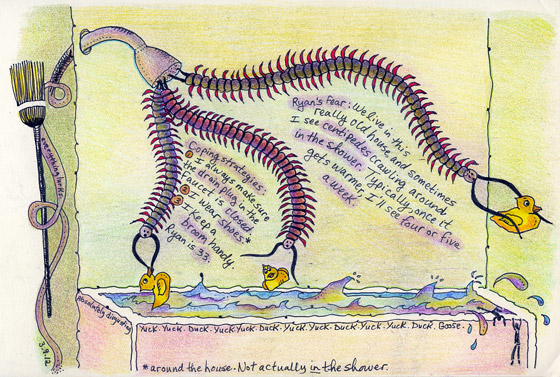 Ryan's fear: We live in this
really old house, and sometimes
I see centipedes crawling around
in the shower. Typically, once it
gets warmer, I'll see four or five
a week.
Coping strategies:
I always make sure
the drain plug in the
faucet is closed
I wear shoes.*
I keep a
broom handy.
Ryan is 33.
absolutely disgusting
3.9.12
Yuck. Yuck. Duck. Yuck. Yuck. Duck. Yuck. Yuck. Duck. Yuck. Yuck. Duck. Goose.
*around the house. Not actually in the shower.